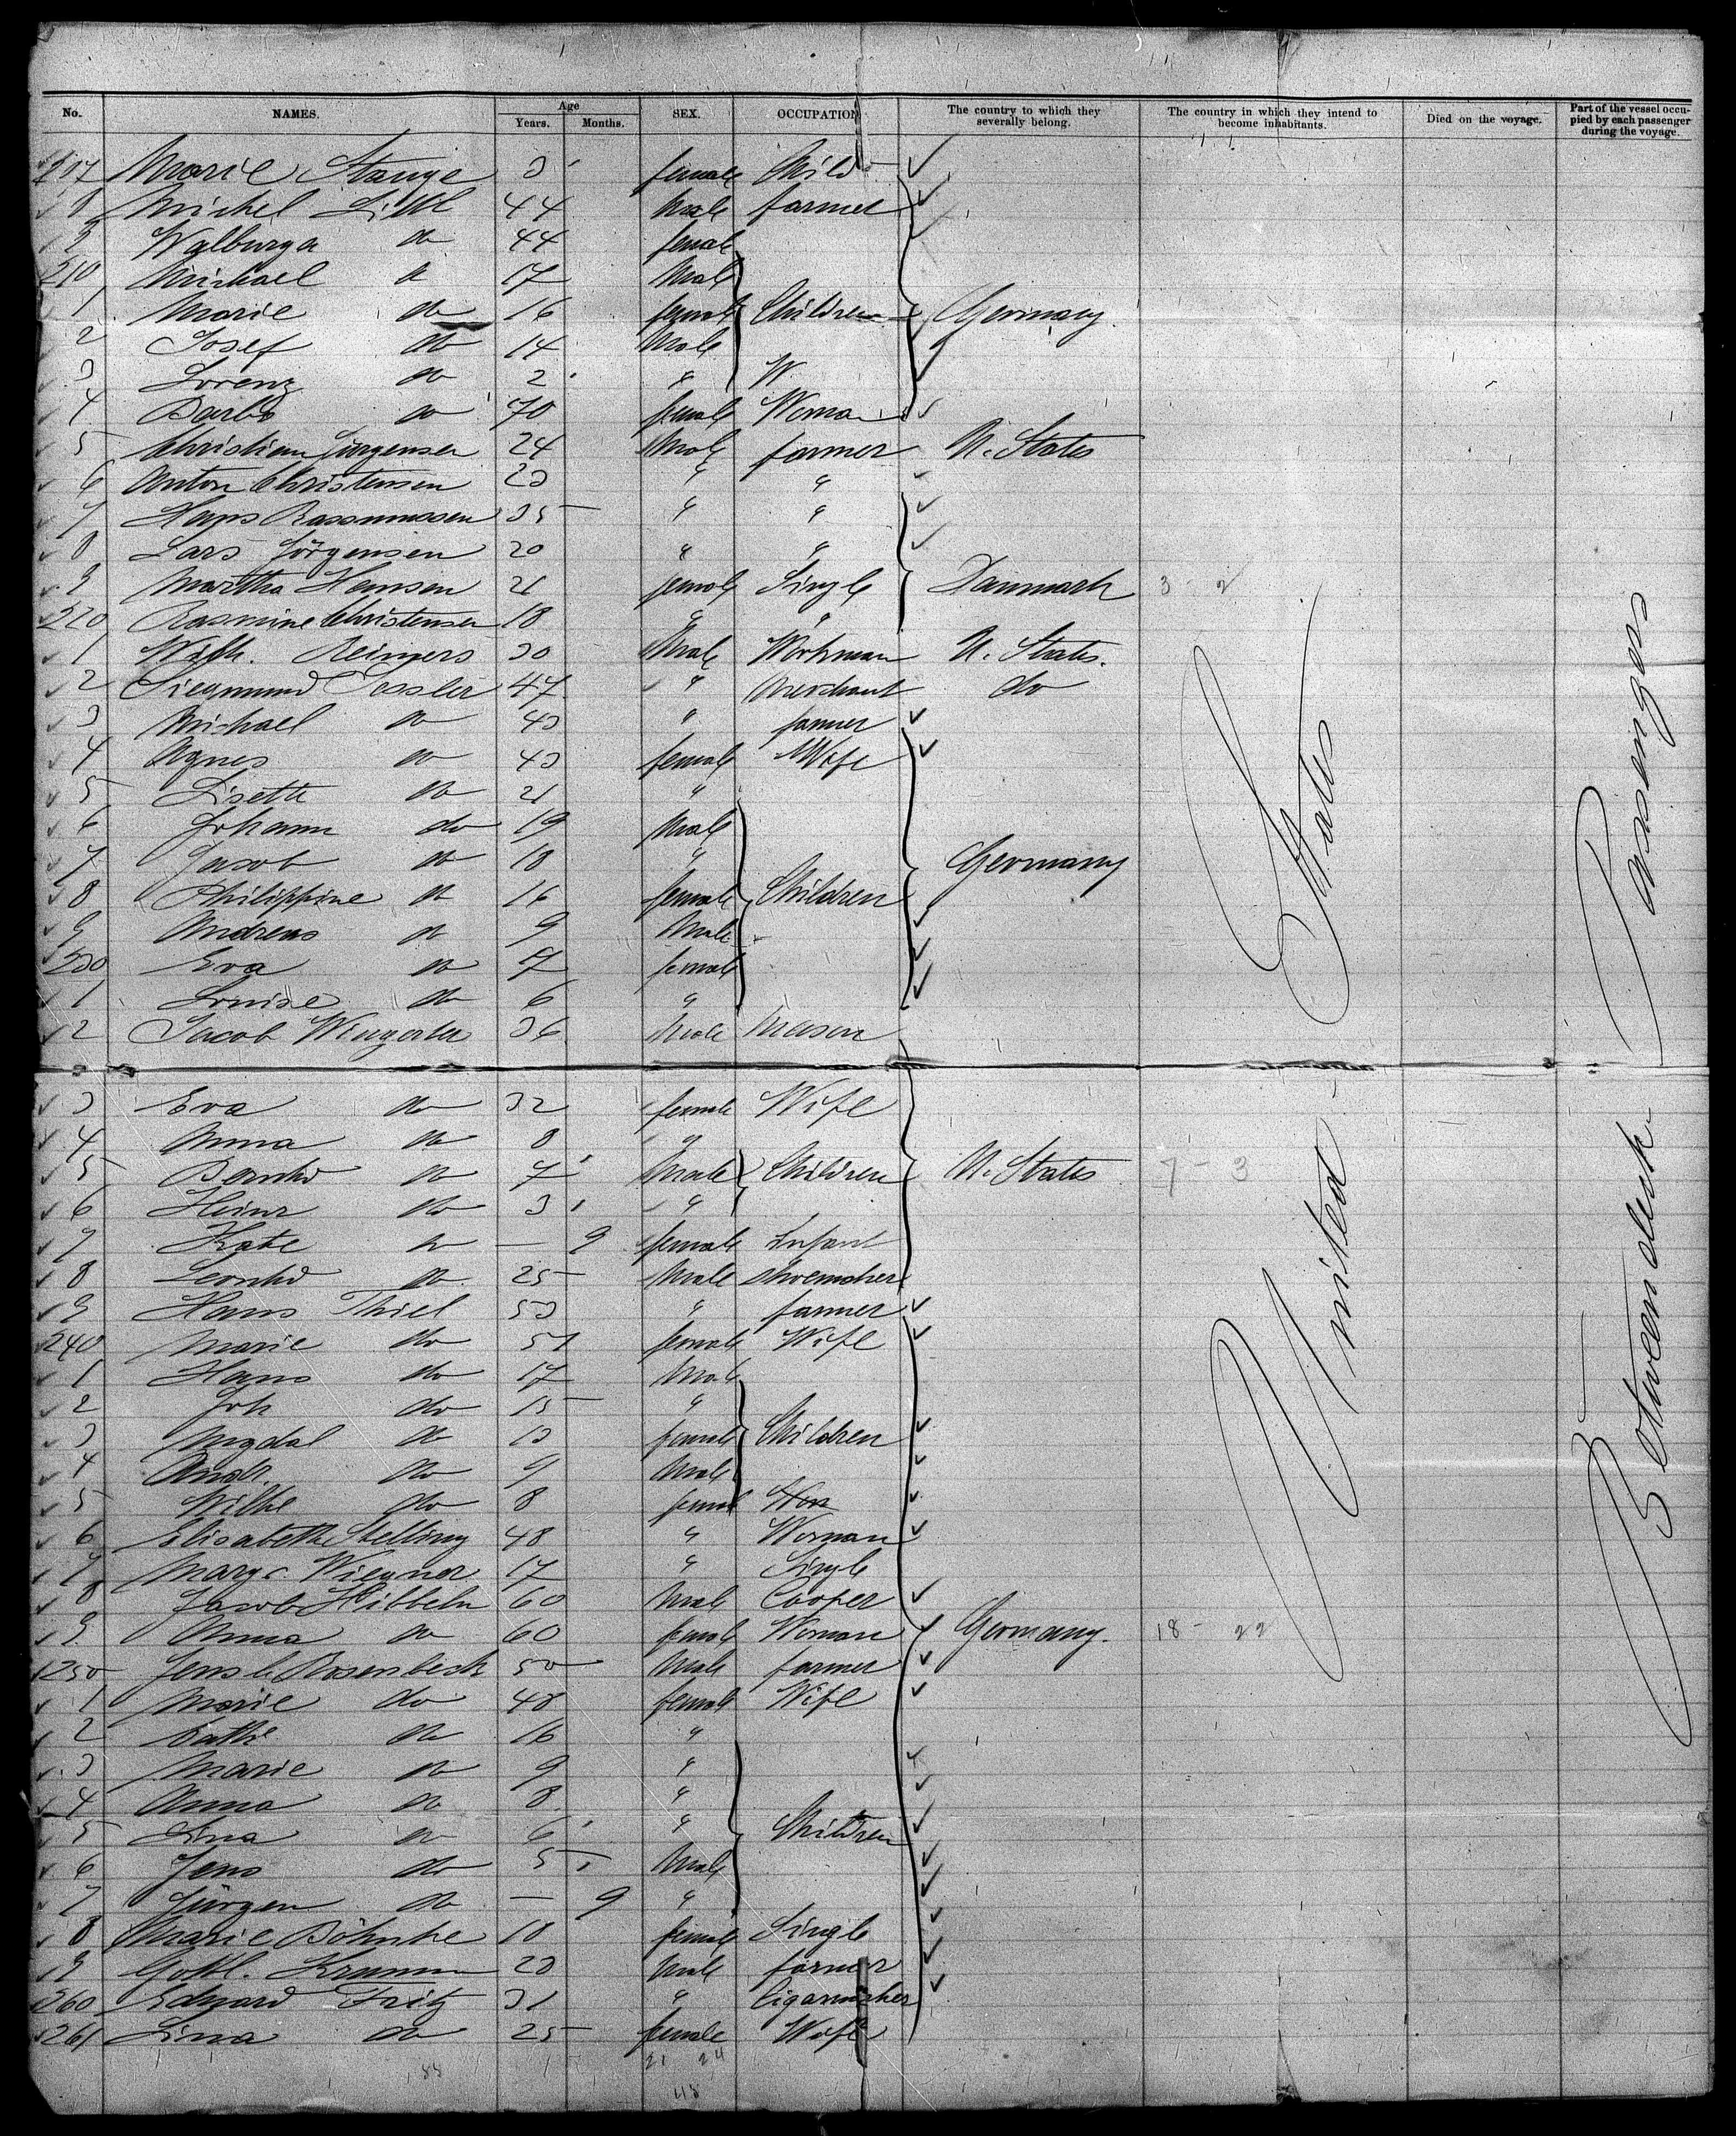 No. NAMES. Age Years. Months. SEX. OCCUPATION The country to which they severally belong. The country in which they intend to become inhabitants. Died on the voyage. Part of the vessel occupied by each passenger during the voyage.
207 Marie Stange 3 female Child
8 Michel 44 Male farmer
9 Walburga do 44 female
210 Michael do 17 Male
1 Marie do 16 female Children Germany
2 Josef do 14 Male
3 Lorenz do 2 "
4 Barb. do 70 female Woman
5 Christian Jürgensen 24 Male farmer U. States
6 Anton Christensen 23 " "
7 Hans Rassmussen 35 " "
8 Lars Jörgensen 20 " "
9 Martha Hansen 21 female Single Danmark 3 - 2
220 Rasmine Christensen 18 " "
1 Wilh. Reimers 30 Male Workman U. States.
2 Siegmund Tessler 47 " Merchant do
3 Michael do 43 " farmer
4 Agnes do 43 female Wife
5 Lisette do 21 "
6 Johann do 19 Male
7 Jacob do 18 " Germany
8 Philippine do 16 female Children
9 Andreas do 9 Male
230 Eva do 7 female
1 Louise do 6 "
2 Jacob Wingerter 36 Male Mason
3 Eva do 32 female Wife
4 Anna do 8 "
5 Bernhd do 7 Male Children U. States 7 - 3
6 Heinr do 3 "
7 Kate do — 9 female Infant
8 Leonhd do 25 Male Shoemaker
9 Hans Thiel 53 " farmer
240 Marie do 51 female Wife
1 Hans do 17 Male
2 Joh do 15 "
3 Magdal do 13 female Children
4 Andr. do 9 Male
5 Wilhe do 8 female
6 Elisabethe Stelling 48 " Woman
7 Margr. Wiegner 17 " Single
8 Jacob Hibbeln 60 Male Cooper
9 Anna do 60 female Woman Germany. 18 - 22
250 Jens C Rosenbeck 50 Male farmer
1 Marie do 48 female Wife
2 Cathe do 16 "
3 Marie do 9 "
4 Anna do 8 "
5 Lina do 6 " Children
6 Jens do 5 Male
7 Jürgen do — 9 "
8 Marie Böhnke 18 female Single
9 Gottl. Krumm 23 Male farmer
260 Eduard Fritz 31 " Cigarmaker
261 Lina do 25 female Wife
21 24
United States
Betweendeck Passengers